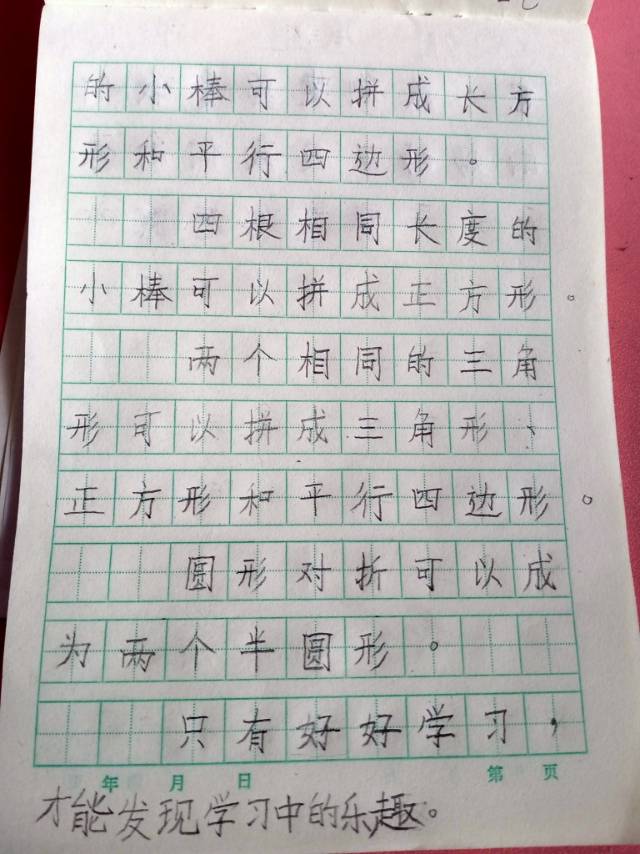 的小棒可以拼成长方
形和平行四边形。
四根相同长度的
小棒可以拼成正方形。
两个相同的三角
形可以拼成三角形、
正方形和平行四边形。
圆形对折可以成
为两个半圆形。
只有好好学习，
年 月 日 第 页
才能发现学习中的乐趣。